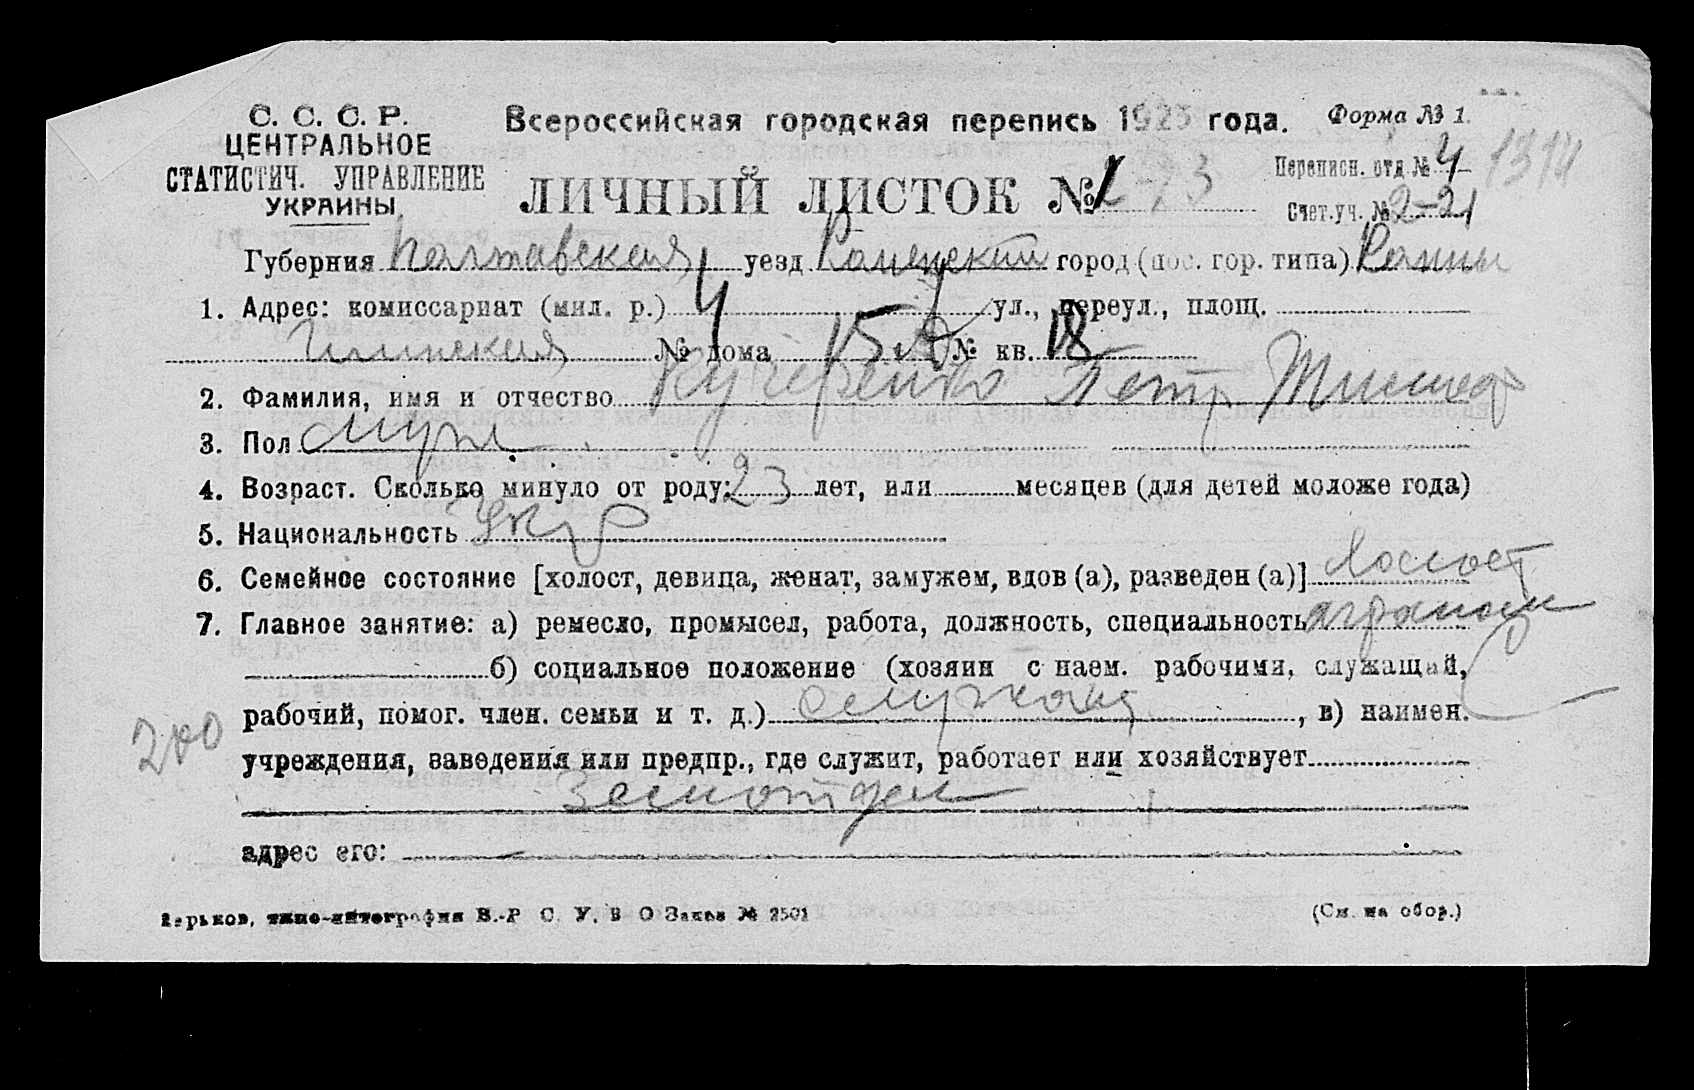 С. С. С. Р.
ЦЕНТРАЛЬНОЕ
СТАТИСТИЧ. УПРАВЛЕНИЕ
УКРАИНЫ.
Всероссийская городская перепись 1923 года.
Форма № 1.
ЛИЧНЫЙ ЛИСТОК №
Переписн. отд. № 4
1314
Счет. уч. № 2-21
Губерния Полтавская уезд Роменский город (пос. гор. типа) Ромны
1. Адрес: комиссариат (мил. р.) 4 ул., переул., площ.
№ дома 15 № кв. 18
2. Фамилия, имя и отчество Кучеренко Петр
3. Пол муж
4. Возраст. Сколько минуло от роду: 23 лет, или месяцев (для детей моложе года)
5. Национальность Укр
6. Семейное состояние [холост, девица, женат, замужем, вдов (а), разведен (а)] холост
7. Главное занятие: а) ремесло, промысел, работа, должность, специальность агроном
б) социальное положение (хозяин с наем. рабочими, служащий,
рабочий, помог. член. семьи и т. д.) служащ, в) наимен.
200
учреждения, заведения или предпр., где служит, работает или хозяйствует
Земотдел
адрес его:
Харьков, типо-литография В.-Р С. У. В О Заказ № 2501
(См. на обор.)